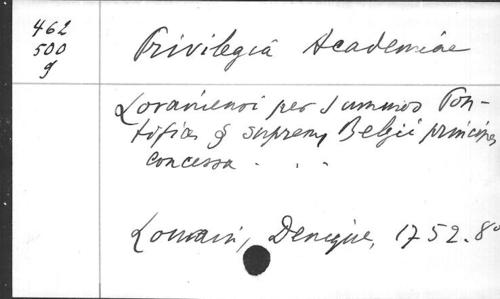 462
500
g
Privilegiâ Academiae
Lovaniensi per summos Pon-
tifices & supremos Belgii principes
concessa . . .
Louvain, Denique, 1752. 8°